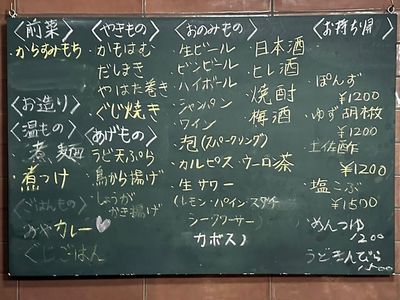 〈前菜〉
・からすみもち
〈お造り〉
〈温もの〉
煮麺
煮つけ
〈ごはんもの〉
みやカレー
ぐじごはん
〈やきもの〉
かもはむ
だしまき
やはた巻き
ぐじ焼き
〈あげもの〉
うど天ぷら
鳥から揚げ
しょうが
かき揚げ
〈おのみもの〉
・生ビール
・ビンビール
・ハイボール
・シャンパン
・ワイン
・泡(スパークリング)
・カルピス・ウーロン茶
・生サワー
(レモン・パイン・スダチ
シークワーサー
カボス)
・日本酒
・ヒレ酒
・焼酎
・梅酒
〈お持ち帰
・ぽんず
¥1200
・ゆず胡椒
¥1200
・土佐酢
¥1200
・塩こぶ
¥1500
・めんつゆ
1200
うどきんぴら